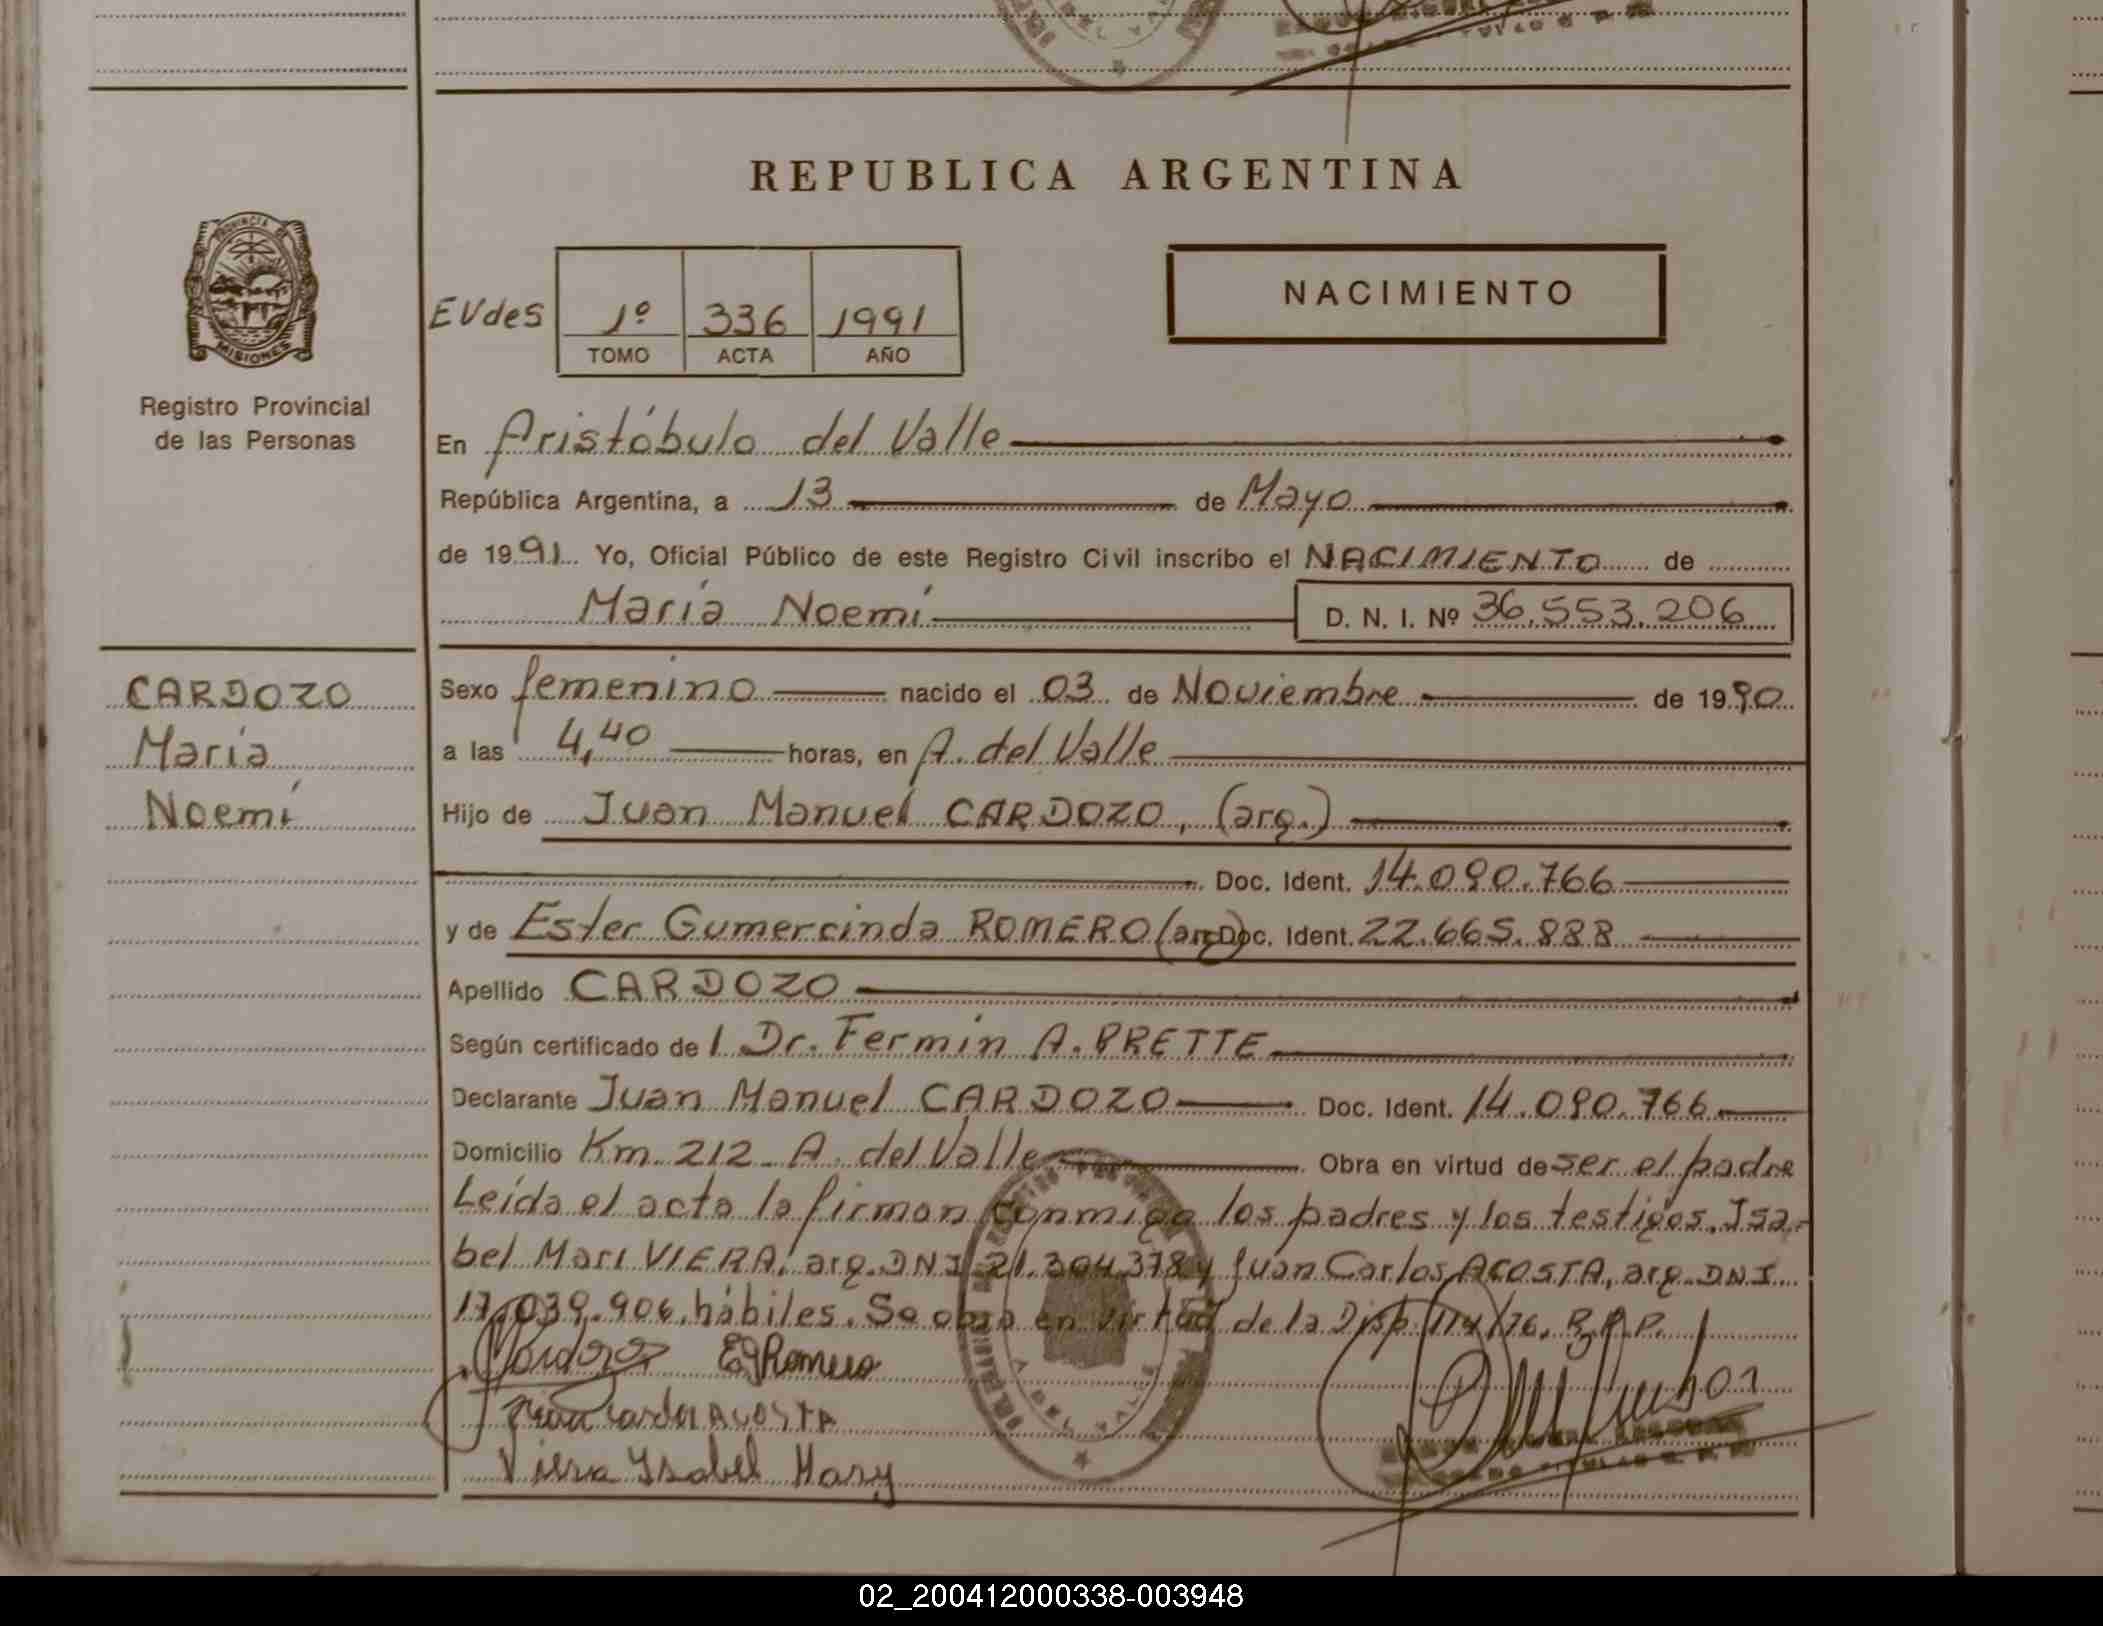 REPUBLICA ARGENTINA
PROVINCIA DE
MISIONES
Registro Provincial
de las Personas
EVdes
1º 336 1991
TOMO ACTA AÑO
NACIMIENTO
En Aristóbulo del Valle
República Argentina, a 13 de Mayo
de 1991 Yo, Oficial Público de este Registro Civil inscribo el NACIMIENTO de
María Noemí D. N. I. Nº 36.553.206
CARDOZO
María
Noemí
Sexo femenino nacido el 03 de Noviembre de 1990
a las 4,40 horas, en A. del Valle
Hijo de Juan Manuel CARDOZO, (arg.)
Doc. Ident. 14.090.766
y de Ester Gumercinda ROMERO (arg) Doc. Ident. 22.665.888
Apellido CARDOZO
Según certificado de l Dr. Fermín A. PRETTE
Declarante Juan Manuel CARDOZO Doc. Ident. 14.090.766
Domicilio Km. 212 - A. del Valle Obra en virtud de ser el padre
Leída el acta la firman conmigo los padres y los testigos, Isa-
bel Mari VIERA, arg. DNI 21.304.378 y Juan Carlos ACOSTA, arg. DNI
17.039.906, hábiles. Se obra en virtud de la Disp. 114/76. R.P.P.
Cardozo EGRomero
Juan Carlos ACOSTA
Viera Ysabel Mary
02_200412000338-003948